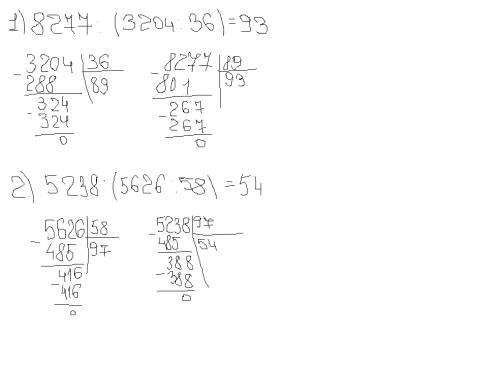 1) 8277 : (3204 : 36) = 93
- 3204 36
288 89
- 324
324
0
- 8277 89
801 93
- 267
267
0
2) 5238 : (5626 : 58) = 54
- 5626 58
485 97
- 416
416
0
- 5238 97
485 54
- 388
388
0